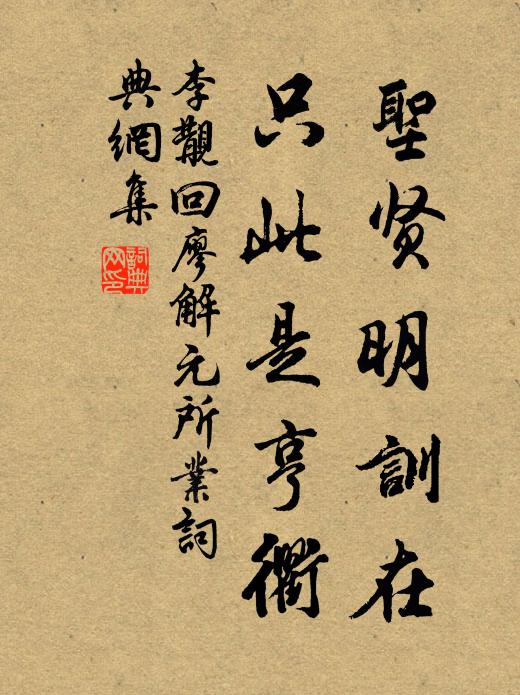 聖贤明訓在
只此是亨衢
李觏回廖解元所業詞
典網集
詞典网印